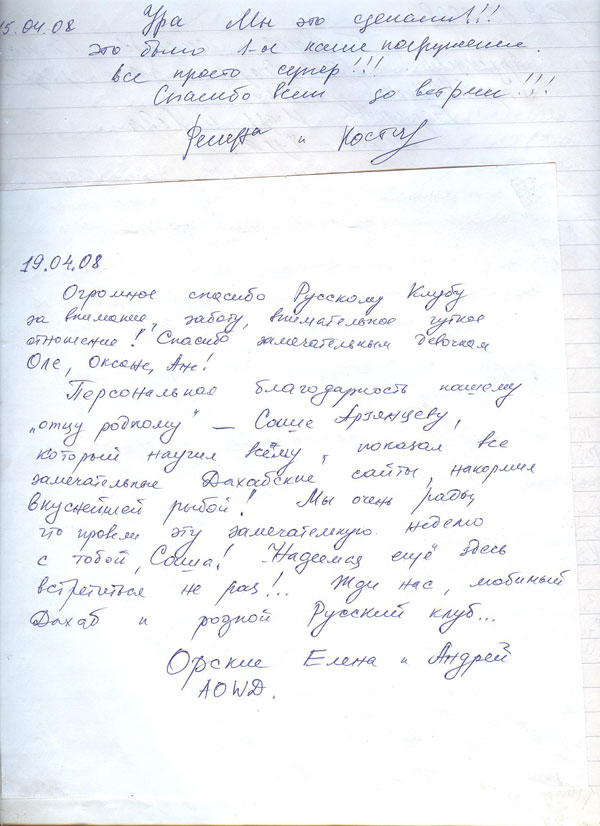 5.04.08 Ура Мы это сделали!!!
это было 1-ое наше погружение.
все просто супер!!!
Спасибо всем до встречи!!!
и Костя
19.04.08
Огромное спасибо Русскому Клубу
за внимание, заботу, внимательное чуткое
отношение! Спасибо замечательным девочкам
Оле, Оксане, Ане!
Персональная благодарность нашему
„отцу родному" – Саше Арзянцеву,
который научил всему, показал все
замечательные Дахабские сайты, накормил
вкуснейшей рыбой! Мы очень рады,
что провели эту замечательную неделю
с тобой, Саша! Надеемся ещё здесь
встретиться не раз!.. Жди нас, любимый
Дахаб и родной Русский клуб...
Орские Елена и Андрей
AOWD.